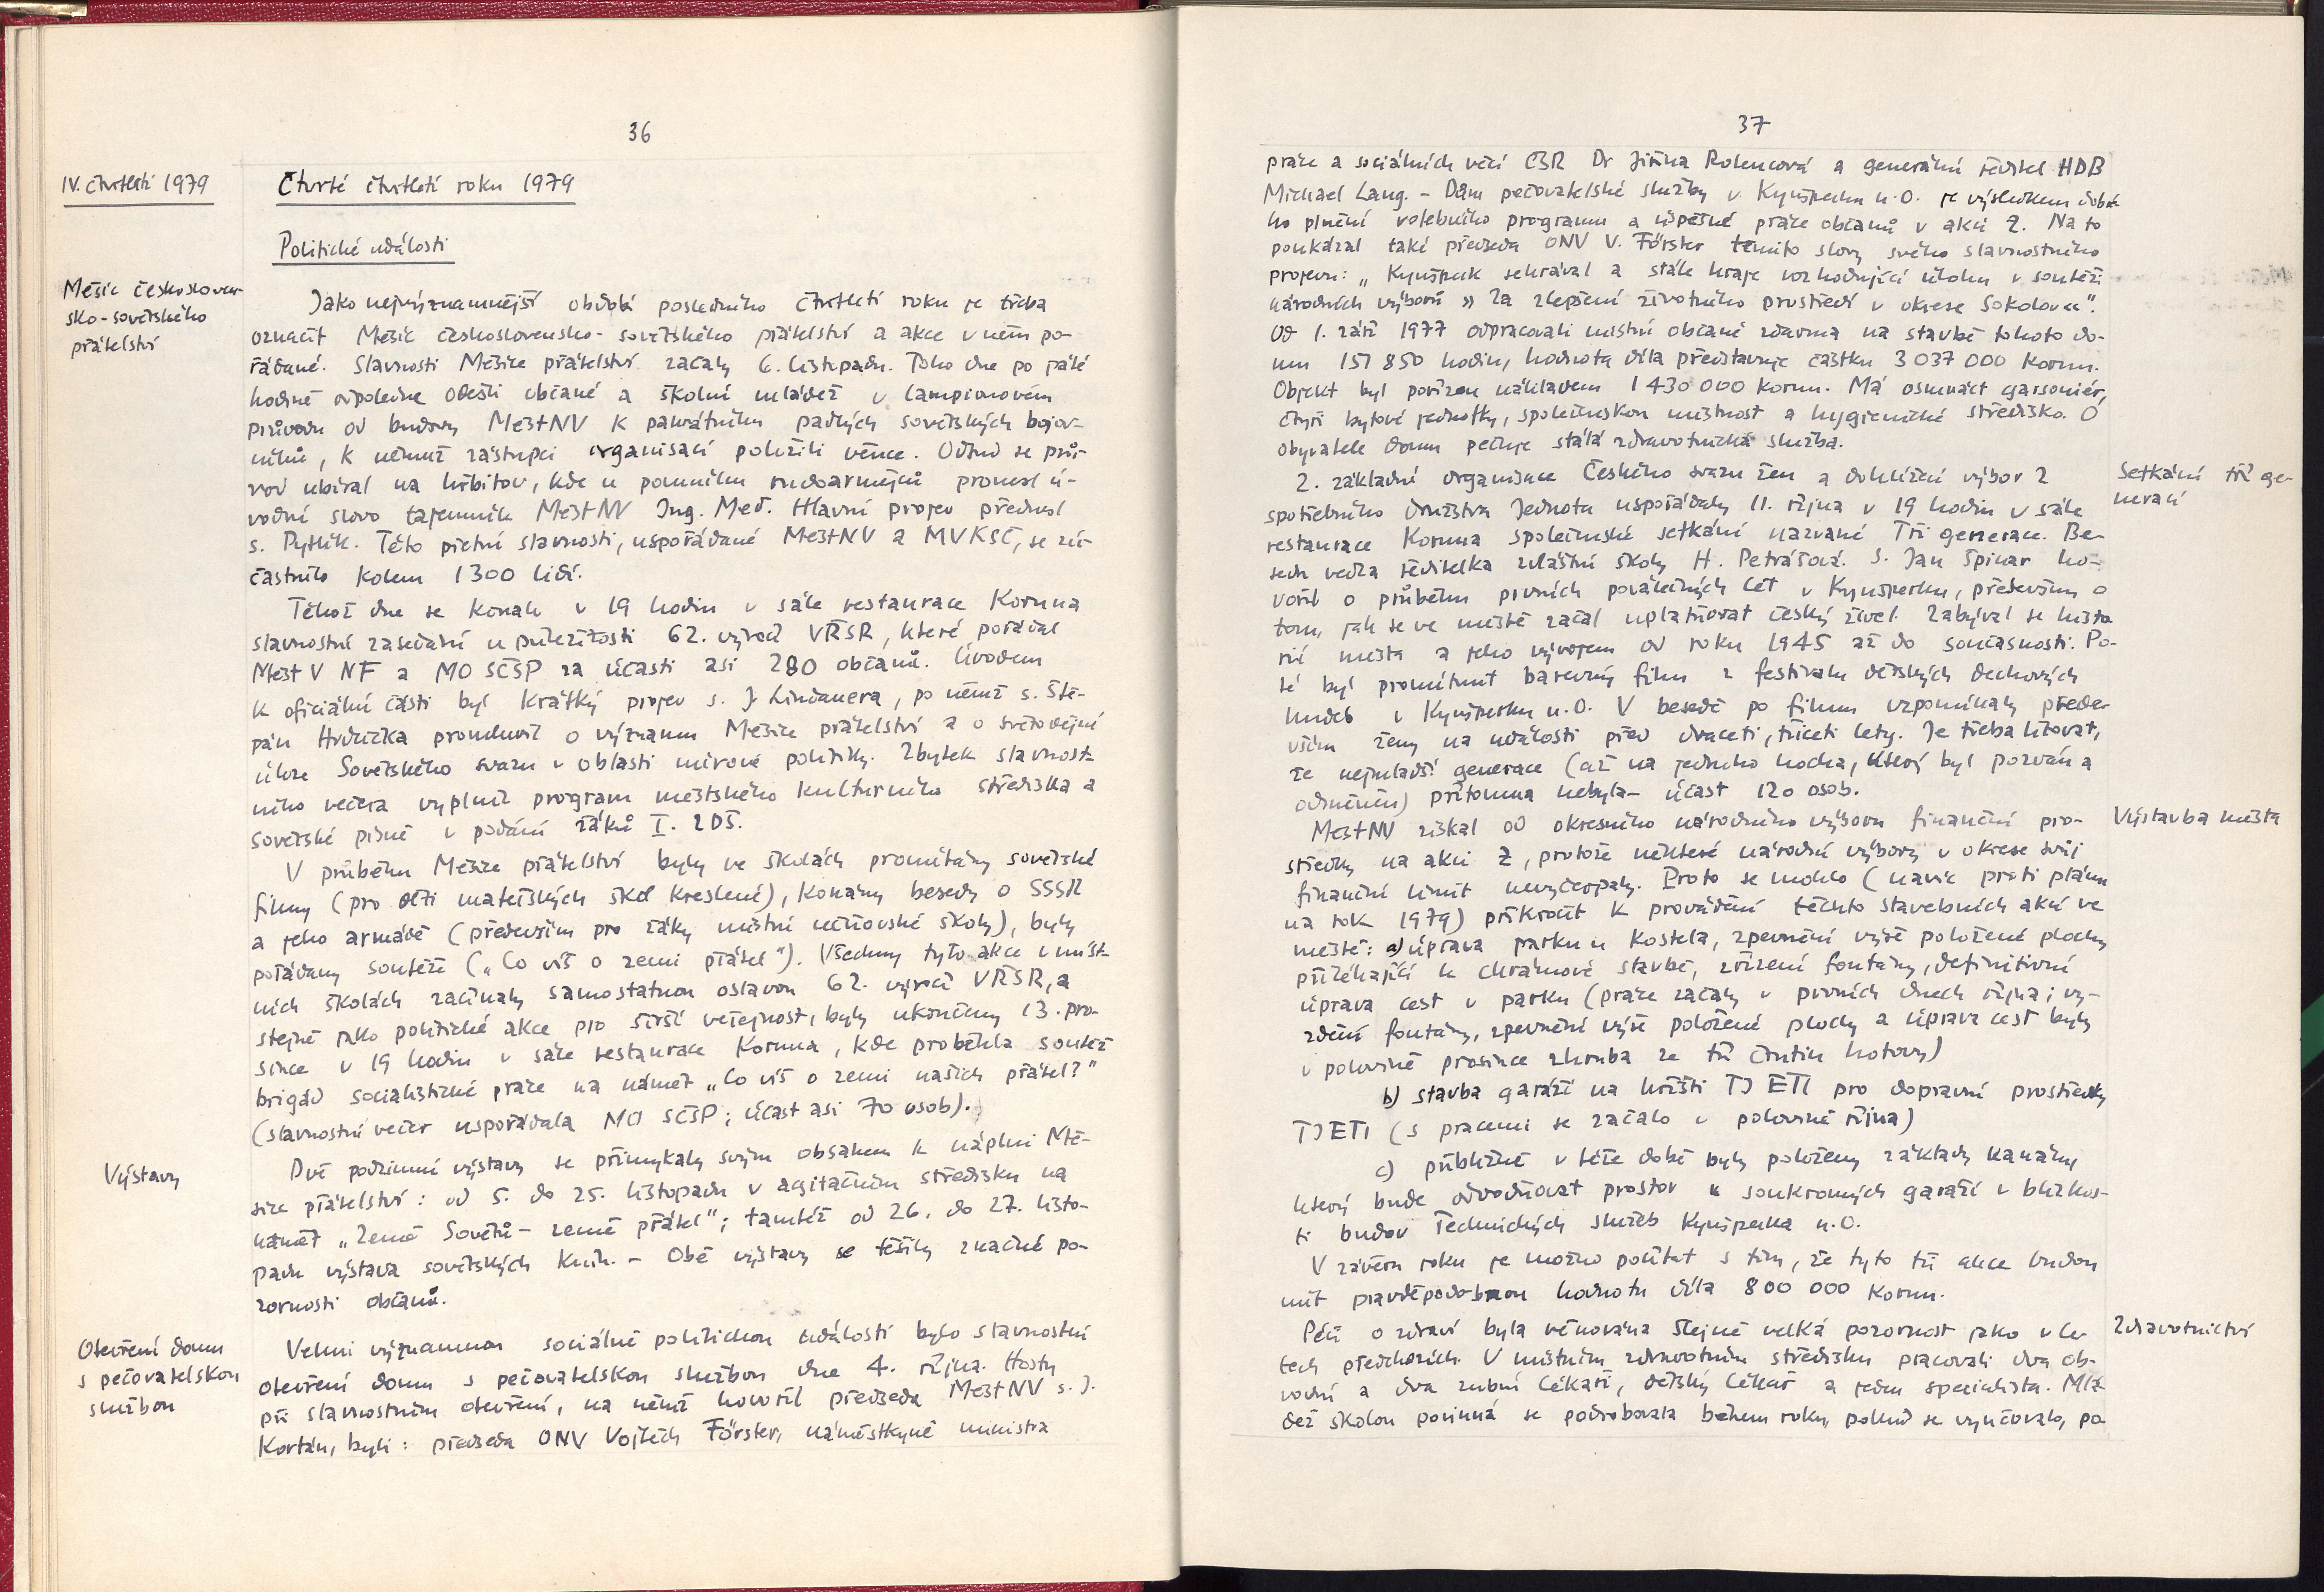 36
IV. čtvrtletí 1979
Čtvrté čtvrtletí roku 1979
Politické události
Měsíc českosloven-
sko-sovětského
přátelství
Jako nejvýznamnější období posledního čtvrtletí roku je třeba
označit Měsíc československo-sovětského přátelství a akce v něm po-
řádané. Slavnosti Měsíce přátelství začaly 6. listopadu. Toho dne po páté
hodině odpoledne odešli občané a školní mládež v lampionovém
průvodu od budovy MěstNV k památníku padlých sovětských bojov-
níků, k němuž zástupci organisací položili věnce. Odtud se prů-
vod ubíral na hřbitov, kde u pomníku rudoarmějců pronesl ú-
vodní slovo tajemník MěstNV Ing. Meč. Hlavní projev přednesl
s. Pytlík. Této pietní slavnosti, uspořádané MěstNV a MVKSČ, se zú-
častnilo kolem 1300 lidí.
Téhož dne se konalo v 19 hodin v sále restaurace Koruna
slavnostní zasedání u příležitosti 62. výročí VŘSR, které pořádal
Měst V NF a MO SČSP za účasti asi 280 občanů. Úvodem
k oficiální části byl krátký projev s. J. Lindauera, po němž s. Ště-
pán Hrdlička promluvil o významu Měsíce přátelství a o světodějné
úloze Sovětského svazu v oblasti mírové politiky. Zbytek slavnost-
ního večera vyplnil program městského kulturního střediska a
sovětské písně v podání žáků I. ZDŠ.
V průběhu Měsíce přátelství byly ve školách promítány sovětské
filmy (pro děti mateřských škol kreslené), konány besedy o SSSR
a jeho armádě (především pro žáky místní učňovské školy), byly
pořádány soutěže („Co víš o zemi přátel“). Všechny tyto akce v míst-
ních školách začínaly samostatnou oslavou 62. výročí VŘSR, a
stejně jako politické akce pro širší veřejnost, byly ukončeny 13. pro-
since v 19 hodin v sále restaurace Koruna, kde proběhla soutěž
brigád socialistické práce na námět „Co víš o zemi našich přátel?“
(slavnostní večer uspořádala MO SČSP; účast asi 70 osob).
Výstavy
Dvě podzimní výstavy se přimykaly svým obsahem k náplni Mě-
síce přátelství: od 5. do 25. listopadu v agitačním středisku na
námět „Země Sovětů – země přátel“; tamtéž od 26. do 27. listo-
padu výstava sovětských knih. – Obě výstavy se těšily značné po-
zornosti občanů.
Otevření domu
s pečovatelskou
službou
Velmi významnou sociálně politickou událostí bylo slavnostní
otevření domu s pečovatelskou službou dne 4. října. Hosty
při slavnostním otevření, na němž hovořil předseda MěstNV s. J.
Kortán, byli: předseda ONV Vojtěch Förster, náměstkyně ministra
37
práce a sociálních věcí ČSR Dr Jiřina Rolencová a generální ředitel HDB
Michael Lang. – Dům pečovatelské služby v Kynšperku n. O. je výsledkem dobré-
ho plnění volebního programu a úspěšné práce občanů v akci Z. Na to
poukázal také předseda ONV V. Förster těmito slovy svého slavnostního
projevu: „Kynšperk sehrával a stále hraje rozhodující úlohu v soutěži
národních výborů » Za zlepšení životního prostředí v okrese Sokolov«“.
Od 1. září 1977 odpracovali místní občané zdarma na stavbě tohoto do-
mu 151 850 hodin, hodnota díla představuje částku 3 037 000 korun.
Objekt byl pořízen nákladem 1 430 000 korun. Má osmnáct garsoniér,
čtyři bytové jednotky, společenskou místnost a hygienické středisko. O
obyvatele domu pečuje stálá zdravotnická služba.
Setkání tří ge-
nerací
2. základní organizace Českého svazu žen a dohlížecí výbor 2
spotřebního družstva Jednota uspořádaly 11. října v 19 hodin v sále
restaurace Koruna společenské setkání nazvané Tři generace. Be-
sedu vedla ředitelka zvláštní školy H. Petrášová. S. Jan Špicar ho-
vořil o průběhu prvních poválečných let v Kynšperku, především o
tom, jak se ve městě začal uplatňovat český živel. Zabýval se histo-
rií města a jeho vývojem od roku 1945 až do současnosti. Po-
té byl promítnut barevný film z festivalu dětských dechových
hudeb v Kynšperku n. O. V besedě po filmu vzpomínaly přede-
vším ženy na události před dvaceti, třiceti lety. Je třeba litovat,
že nejmladší generace (až na jednoho hocha, který byl pozván a
odměněn) přítomna nebyla – účast 120 osob.
Výstavba města
MěstNV získal od okresního národního výboru finanční pro-
středky na akci Z, protože některé národní výbory v okrese svůj
finanční limit nevyčerpaly. Proto se mohlo (navíc proti plánu
na rok 1979) přikročit k provádění těchto stavebních akcí ve
městě: a) úprava parku u kostela, zpevnění výše položené plochy
přiléhající k chrámové stavbě, zřízení fontány, definitivní
úprava cest v parku (práce začaly v prvních dnech října; vy-
zdění fontány, zpevnění výše položené plochy a úprava cest byly
v polovině prosince zhruba ze tří čtvrtin hotovy)
b) stavba garáží na hřišti TJ ETI pro dopravní prostředky
TJ ETI (s pracemi se začalo v polovině října)
c) přibližně v téže době byly položeny základy kanálu,
který bude odvodňovat prostor u soukromých garáží v blízkos-
ti budov Technických služeb Kynšperka n. O.
V závěru roku je možno počítat s tím, že tyto tři akce budou
mít pravděpodobnou hodnotu díla 800 000 korun.
Zdravotnictví
Péči o zdraví byla věnována stejně velká pozornost jako v le-
tech předchozích. V místním zdravotním středisku pracovali dva ob-
vodní a dva zubní lékaři, dětský lékař a jeden specialista. Mlá-
dež školou povinná se podrobovala během roku, pokud se vyučovalo, po